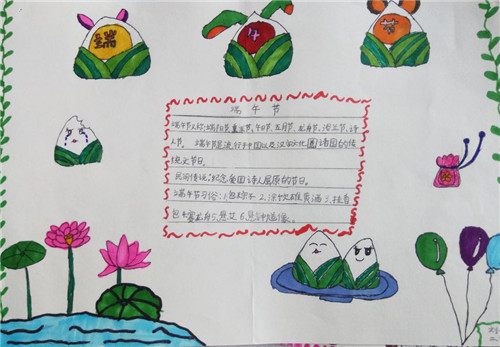 端 午 节
端午节
端午节又称:端阳节,重五节,午日节,五月节,龙舟节,浴兰节,诗
人节。 端午节是流行于中国以及汉字文化圈诸国的传
统文节日。
民间传说:纪念爱国诗人屈原的节日。
端午节习俗:1.包粽子 2.涂饮雄黄酒 3.挂香
包 4.赛龙舟 5.悬艾 6.